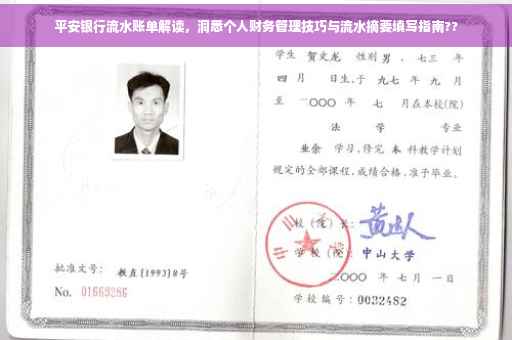 平安银行流水账单解读，洞悉个人财务管理技巧与流水摘要填写指南??
学生 贺文龙 性别 男，七三 年
四 月 日生，于 九七 年 九 月
至 二〇〇〇 年 七 月在本校(院)
法 学 专业
业余 学习，修完 本 科教学计划
规定的全部课程，成绩合格，准予毕业。
校 (院) 长：
学 校 (院)： 中山大学
批准文号： 教直[1993]8号
二〇〇〇 年 七 月 一 日
No. 01669286
学校编号：0032482